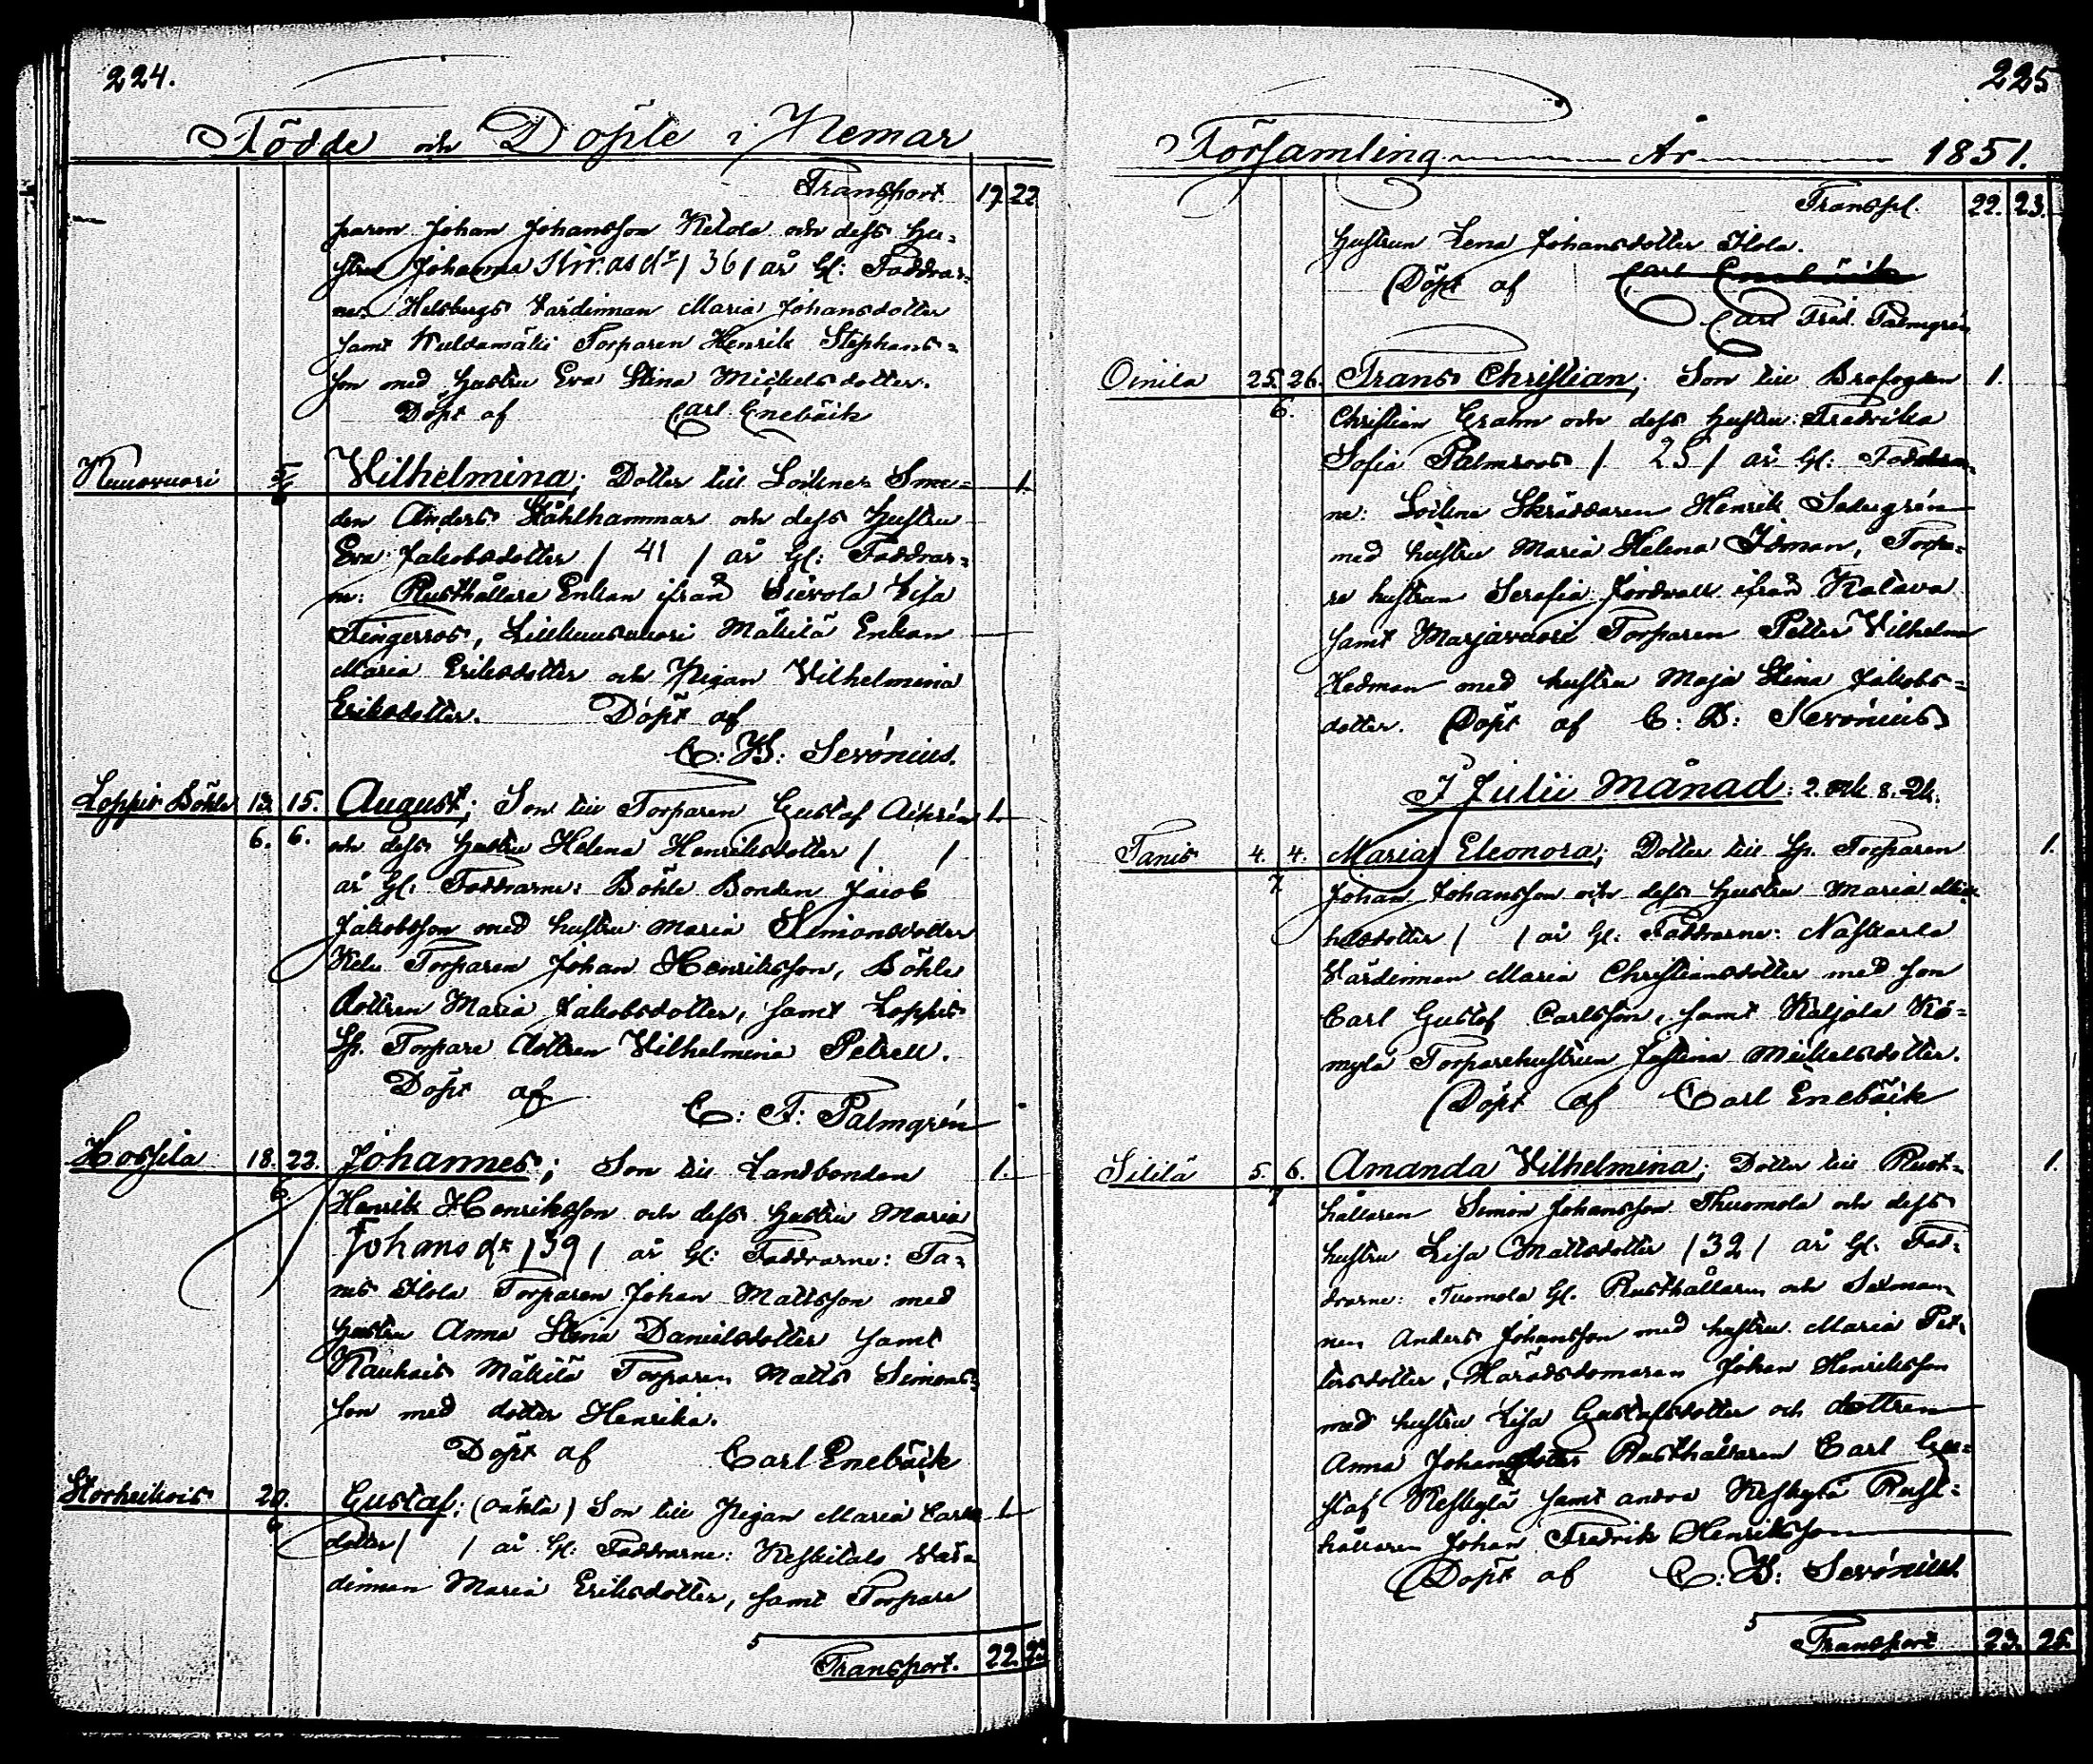 224.
Födde och Döpte i Nemar
Transport 19. 22
paren Johan Johansson Ketola och dess hu=
stru Johanna / 36 / år gl: Faddrar=
ne: Helsbergs Värdinnan Maria Johansdotter
samt Kuldamäki Torparen Henrik Stephans=
son med hustru Eva Stina Mickelsdotter.
Döpt af Carl Enebäck
Kuusvuori 5/6 Wilhelmina; Dotter till Sme= 1.
den Anders Ståhlhammar och dess hustru
Eva Jakobsdotter / 41 / år gl: Faddrar=
ne: Rusthållare Enkan ifrån Sievola Lisa
Fingerroos, Lillkuusvuori Mäkilä Enkan
Maria Eriksdotter och Pigan Wilhelmina
Eriksdotter. Döpt af
C: W: Serónius.
Loppis Böhle 13. 15. August; Son till Torparen Gustaf 1.
6. 6. och dess hustru Helena Henriksdotter / /
år gl: Faddrarne: Böhle Bonden Jacob
Jakobsson med hustru Maria Simonsdotter
Torparen Johan Henriksson, Böhle
dottren Maria Jakobsdotter, samt Loppis
Sp. Torpare dottren Wilhelmina Petrell.
Döpt af
C: F: Palmgrén
Hossila 18. 22. Johannes; Son till Landbonden 1.
6. Henrik Henriksson och dess hustru Maria
Johansdr / 39 / år gl: Faddrarne: Ta=
nis Ilola Torparen Johan Mattsson med
hustru Anna Stina Danielsdotter samt
Kaukois Mäkilä Torparen Matts Simons=
son med dotter Henrika.
Döpt af Carl Enebäck
Storheikois 20. Gustaf; (oäkta) Son till Pigan Maria Carls 1.
6 dotter / / år gl: Faddrarne: Keskitalo Vär=
dinnan Maria Eriksdotter, samt Torpare
5
Transport. 22. 23.
225
Församling År 1851.
Transpt. 22. 23.
hustrun Lena Johansdotter Ilola.
Döpt af Carl Enebäck
Carl Fred. Palmgrén
Oinila 25. 26. Frans Christian; Son till Brofogden 1.
6. Christian Grahn och dess hustru Fredrika
Sofia Palmroos / 25 / år gl: Faddrar=
ne: Skräddaren Henrik Sedergrén
med hustru Maria Helena Idman, Torpa=
re hustrun Serafia Jordvall ifrån Katava
samt Marjavuori Torparen Petter Wilhelm
Hedman med hustru Maja Stina Jakobs=
dotter. Döpt af C: W: Serónius
I Julii Månad: 2. 8.
Tanis 4. 4. Maria Eleonora; Dotter till Sp. Torparen 1.
7 Johan Johansson och dess hustru Maria Mic=
helsdotter / / år gl: Faddrarne: Näskarla
Värdinnan Maria Christiansdotter med son
Carl Gustaf Carlsson, samt Karjala Kö=
mylä Torparehustrun Justina Mickelsdotter.
Döpt af Carl Enebäck
Sililä 5. 6. Amanda Wilhelmina; Dotter till Rust= 1.
7 hållaren Simon Johansson Thuomola och dess
hustru Lisa Mattsdotter / 32 / år gl. Fad=
drarne: Tuomola gl. Rusthållaren och Sexman=
nen Anders Johansson med hustru Maria Pet=
tersdotter, Häradsdomaren Johan Henriksson
med hustru Lisa Gustafsdotter och dottren
Anna Johansdotter Rusthållaren Carl Gus=
taf Keskylä samt andra Keskylä Rust=
hållaren Johan Fredrik Henriksson
Döpt af C: W: Serónius.
5
Transport 23. 25.